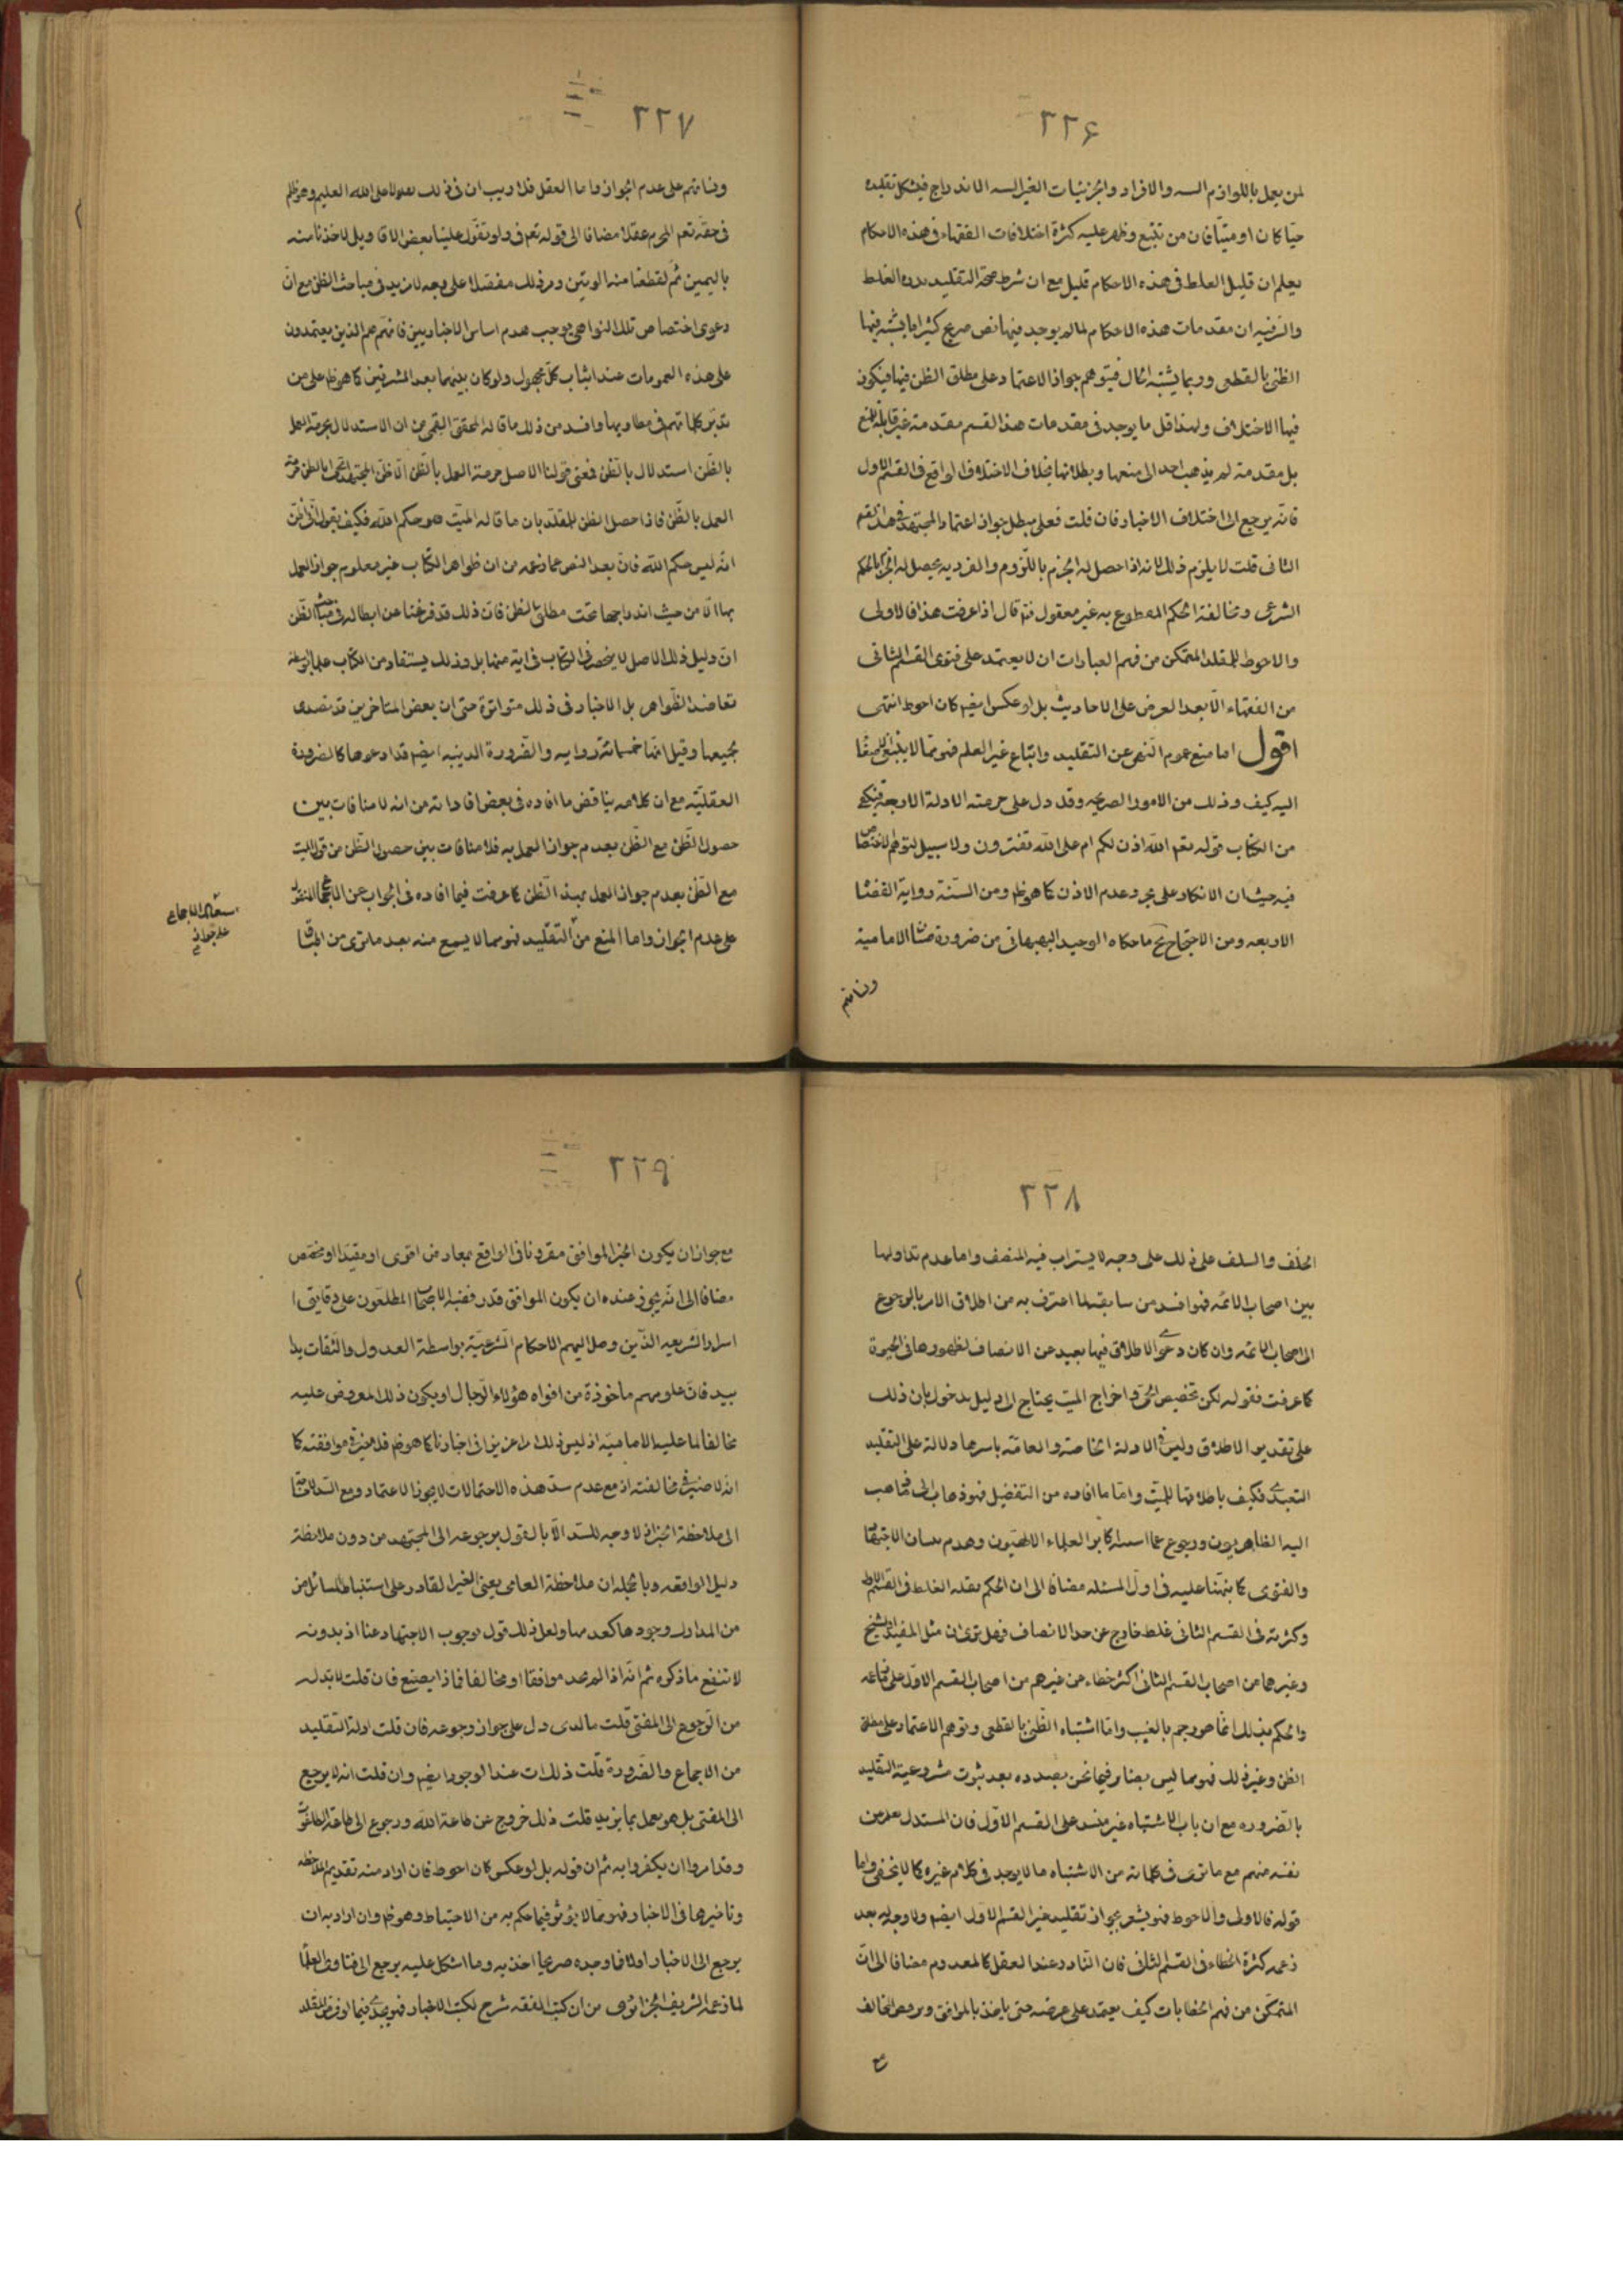 ٢٢۶
لمن يعمل باللوازم والافراد والجزئيات الغير الاندراج فيشكل تقليده
حيّا كان او ميّتا فان من تتبّع وظهر عليه كثرة اختلافات الفقهاء فى هذه الاحكام
يعلم ان قليل الغلط فى هذه الاحكام قليل مع ان شرط صحة التقليد الغلط
والسّر فيه ان مقدمات هذه الاحكام لما لم يوجد فيها نص صريح كثيرا ما يشتبه فيها
الظنى بالقطعى وربما يشتبه الحال فيتوهم جواز الاعتماد على مطلق الظن فيها فيكون
فيها الاختلاف ولهذا قل ما يوجد فى مقدمات هذا القسم مقدمة غير قابلة للمنع
بل مقدمة لم يذهب احد الى منعها وبطلانها بخلاف الاختلاف الواقع فى القسم الاول
فانّه يرجع الى اختلاف الاخبار فان قلت فعلى يبطل جواز اعتماد المجتهد فى هذا القسم
الثانى قلت لا يلزم ذلك لانه اذا حصل له الجزم باللّزوم والفرديه يحصل له الجزم بالحكم
الشرعى ومخالفة الحكم المقطوع به غير معقول ثم قال اذا عرفت هذا فالاولى
والاحوط للمقلد المتمكن من فهم العبارات ان لا يعتمد على فتوى القسم الثانى
من الفقهاء الّا بعد العرض على الاحاديث بل لو عكس ايضا كان احوط انتهى
اقول اما منع عموم النهى عن التقليد واتباع غير العلم فهو ممّا لا ينبغى
اليه كيف وذلك من الامور الصريحه وقد دل على حرمته الادلة الاربعة فيكفى
من الكتاب قوله تعم الله اذن لكم ام على الله تفترون ولا سبيل لتوهم الاختصاص
فيه حيث ان الانكار على مجرد عدم الاذن كما هو ظم ومن السّنة رواية القضاة
الاربعه ومن الاجماع ما حكاه الوحيد البهبهانى من ضرورة الامامية
٢٢٧
على عدم الجواز واما العقل فلا ريب ان فى ذلك على الله العليم وهو ظلم
فى حقّه تعم المحرم عقلا مضافا الى قوله تعم فى ولو تقوّل علينا بعض الاقاويل لاخذنا منه
باليمين ثمّ لقطعنا منه الوتين ومر ذلك مفصّلا على وجه لا مزيد فى مباحث الظن مع انّ
دعوى اختصاص تلك النواهى يوجب هدم اساس الاخباريين فانهم هم الذين يعتمدون
على هذه العمومات عند ايثاب كلّ مجهول ولو كان بينهما بعد المشرقين كما هو ظم على من
تدبّر كلماتهم فى مطاويها وافسد من ذلك ما قاله المحقق القمى من ان الاستدلال بحرمة العمل
بالظّن استدلال بالظّن فمعنى قولنا الاصل حرمة العمل بالظن الّا ظنّ المجتهد
العمل بالظّن فاذا حصل الظن للمقلّد بان ما قاله الميّت هو حكم الله فكيف يقول
انّه ليس حكم الله فانّ بعد النص عما زعمه من ان ظواهر الكتاب غير معلوم جواز العمل
بها الّا من حيث اندراجها تحت مطلق الظن فانّ ذلك قد فرغنا عن ابطاله فى مباحث الظّن
انّ دليل ذلك الاصل لا ينحصر فى الكتاب فى اية منها بل وذلك يستفاد من الكتاب
تعاضد الظّواهر بل الاخبار فى ذلك متواترة حتى ان بعض المتاخرين قد تصدى
بجميعها وقيل انّها خمسمائة رواية والضّرورة الدينيه ايضم قد ادعوها كالضرورة
العقليّه مع ان كلامه يناقض ما افاده فى بعض افاداته من انه لا منافات بين
حصول الظّن مع الظّن بعدم جواز العمل به فلا منافات بين حصول الظّن من قول الميت
مع الظّن بعدم جواز العمل بهذا الظن كما عرفت فيما افاده فى الجواب عن الاجماع المنقول
على عدم الجواز واما المنع من التقليد فهو مما لا يسمع منه بعد ما ترى من
على جوازه
٢٢٨
الخلف والسلف على ذلك على وجه لا يستراب فيه المنصف واما عدم تداولها
بين اصحاب الائمه فهو افسد من سابقه لما اعترف به من اطلاق الامر بالرجوع
الى اصحاب الائمه وان كان دعوى الاطلاق فيها بعيد عن الانصاف لظهورها فى الحيوة
كما عرفت فقوله لكن تخصيص الحىّ واخراج الميّت يحتاج الى دليل مدخول بان ذلك
على تقدير الاطلاق وليس فى الادلة الخاصة والعامّة باسرها دلالة على التقليد
التعبدى فكيف باطلاقها للميّت وامّا ما افاده من التفصيل فهو ذهاب الى مذاهب
اليه الظاهريون ورجوع عما اسسه اكابر العلماء الالهيّون وهدم بنيان الاجتهاد
والفتوى كما نبّهنا عليه فى اول المسئلة مضافا الى ان الحكم بقلّة الغلط فى القسم الاول
وكثرته فى القسم الثانى غلط خارج عن حد الانصاف فهل ترى ان مثل المفيد والشيخ
وغيرهما من اصحاب القسم الثانى اكثر خطاء من غيرهم من اصحاب القسم الاوّل على
والحكم بذلك انّما هو رجم بالغيب وامّا اشتباه الظّنى بالقطعى وتوهم الاعتماد على مطلق
الظن وغير ذلك فهو مما ليس بضار فيما نحن بصدده بعد ثبوت مشروعية التقليد
بالضّروره مع ان باب الاشتباه غير منسد على القسم الاوّل فان المستدل يعد من
نفسه منهم مع ما ترى فى كلماته من الاشتباه ما لا يوجد فى كلام غيره كما لا يخفى واما
قوله فالاولى والاحوط فهو يشعر بجواز تقليد غير القسم الاول ايضم ولا وجه له بعد
زعمه كثرة الخطاء فى القسم الثانى فان النّادر عند العقل كالمعدوم مضافا الى انّ
المتمكّن من فهم الخطابات كيف يعتمد على عرضه حتى ياخذ بالموافق ويرفض المخالف
٢٢٩
مع جواز ان يكون الخبر الموافق مقرونا فى الواقع بمعارض اقوى او مقيّدا او مخصّص
مضافا الى انّه يجوز عنده ان يكون الموافق قد رفضه الاصحاب المطلعون على دقايق
اسرار الشريعه الذّين وصل اليهم الاحكام الشرعيّة بواسطة العدول والثّقات يدا
بيد فانّ علومهم ماخوذة من افواه هؤلاء الرّجال او يكون ذلك المعروض عليه
مخالفا لما عليه الاماميّه اذ ليس ذلك امرا عزيزا فى اخبارنا كما هو ظم فلا ضير فى موافقته كما
انّه لا ضير فى مخالفته اذ مع عدم سدّ هذه الاحتمالات لا يجوز الاعتماد ومع السدّ
الى ملاحظة الخبر اذ لا وجه للسدّ الّا بالقول برجوعه الى المجتهد من دون ملاحظة
دليل الواقعه وبالجمله ان ملاحظة العامى يعنى الغير القادر على استنباط المسائل من
من المدارك وجودها كعدمها ولعل ذلك قول بوجوب الاجتهاد عينا اذ بدونه
لا تنفع ما ذكره ثم انّه اذا لم يجد موافقا او مخالفا فماذا يصنع فان قلت لا بّد له
من الرّجوع الى المفتى قلت ما لدى دل على جواز رجوعه فان قلت ادلة التقليد
من الاجماع والضّرورة قلت ذلك عند الوجود ايضم وان قلت انه لا يرجع
الى المفتى بل هو يعمل بما يريد قلت ذلك خروج عن طاعة الله ورجوع الى طاعة الطاغوت
وقد امروا ان يكفروا به ثم ان قوله بل لو عكس كان احوط فان اراد منه تقديم الملاحظه
وتاخيرها فى الاخبار فهو ممّا لا يؤثر فيما حكم به من الاحتياط وهو ظم وان اراد به ان
يرجع الى الاخبار اولا فما وجده صريحا اخذ به وما اشكل عليه يرجع الى فتاوى العلماء
لما زعمه الشريف الجزائرى من ان كتب الفقه شرح لكتب الاخبار فهو يجدى فيما لو فرض المقلد